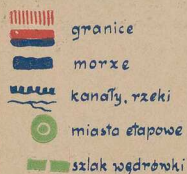 granice
morze
kanały, rzeki
miasta etapowe
szlak wędrówki